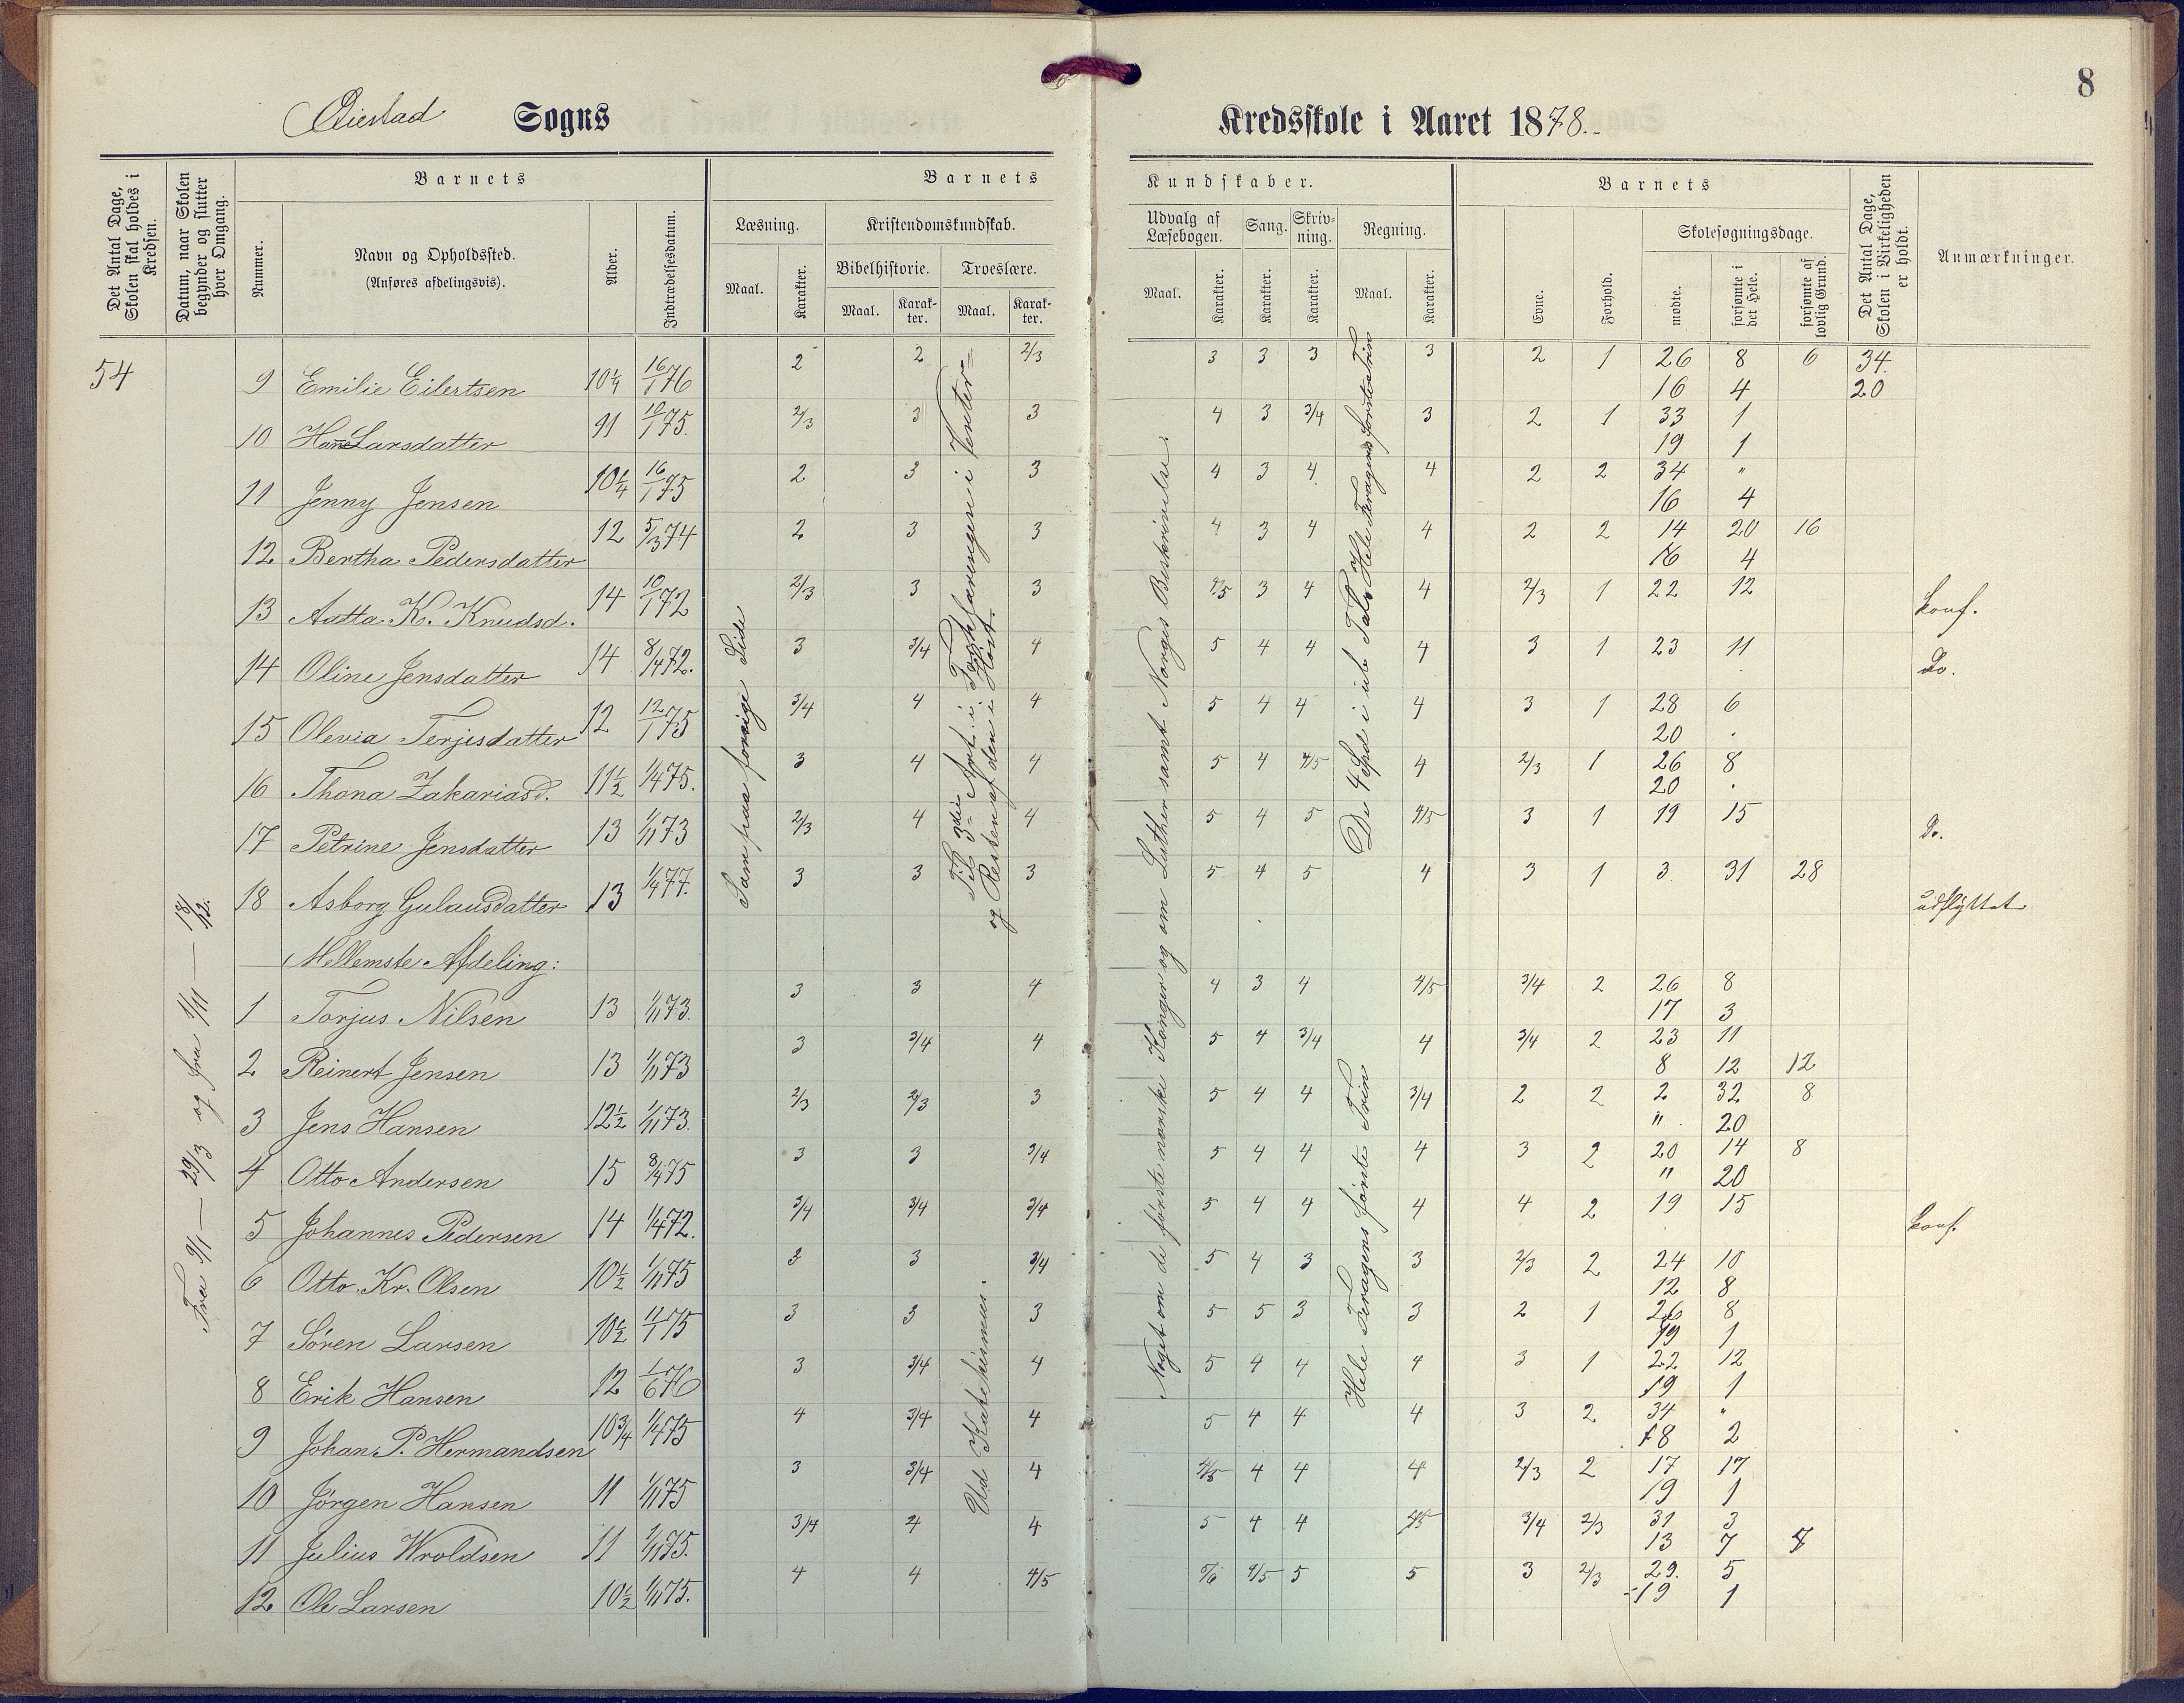 8
Øiestad Sogns Kredsskole i Aaret 1878.
Det Antal Dage, Skolen skal holdes i Kredsen.
Datum, naar Skolen begynder og slutter hver Omgang.
Barnets
Nummer.
Navn og Opholdssted.
(Anføres afdelingsvis).
Alder.
Indtrædelsesdatum.
Barnets Kundskaber.
Læsning.
Maal.
Karakter.
Kristendomskundskab.
Bibelhistorie.
Maal.
Karak-
ter.
Troeslære.
Maal.
Karak-
ter.
Udvalg af
Læsebogen.
Maal.
Karakter.
Sang.
Karakter.
Skriv-
ning.
Karakter.
Regning.
Maal.
Karakter.
Barnets
Evne.
Forhold.
Skolesøgningsdage.
mødte.
forsømte i det Hele.
forsømte af lovlig Grund.
Det Antal Dage, Skolen i Virkeligheden er holdt.
Anmærkninger.
54
Fra 9/1 — 29/3 og fra 1/11 — 18/12.
Som paa forrige Side
Til 3die Art. i Forklaringen i Vinter
og Resten af den i Høst.
Ud Katekismus.
Noget om de første norske Konger og om Luther samt Norges Beskrivelse.
De 4 Spd i ub Tal Hele Feragens første Trin
Hele Feragens første Trin
9 Emilie Eilertsen 10 1/4 16/1 76 2 2 2/3 3 3 3 3 2 1 26 8 6 34.
16 4 20
10 Hanne Larsdatter 91 10/1 75. 2/3 3 3 4 3 3/4 3 2 1 33 1
19 1
11 Jenny Jensen 10 1/4 16/1 75 2 3 3 4 3 4 4 2 2 34 "
16 4
12 Bertha Pedersdatter 12 5/3 74 2 3 3 4 3 4 4 2 2 14 20 16
16 4
13 Aatta K. Knudsd. 14 10/1 72 2/3 3 3 4/5 3 4 4 2/3 1 22 12 konf.
14 Oline Jensdatter 14 8/4 72. 3 3/4 4 5 4 4 4 3 1 23 11 Do.
15 Olevia Terjesdatter 12 12/1 75 3/4 4 4 5 4 4 4 3 1 28 6
20 .
16 Thona Zakariasd. 11 1/2 1/4 75. 3 4 4 5 4 4/5 4 2/3 1 26 8
20 .
17 Petrine Jensdatter 13 1/11 73 2/3 4 4 5 4 5 4/5 3 1 19 15 Do.
18 Asborg Gulausdatter 13 1/4 77. 3 3 3 5 4 5 4 3 1 3 31 28 udflyttet
Mellemste Afdeling:
1 Torjus Nilsen 13 1/11 73. 3 3 4 4 3 4 4/5 3/4 2 26 8
17 3
2 Reinert Jensen 13 1/11 73 3 3/4 4 5 4 3/4 4 3/4 2 23 11
8 12 12
3 Jens Hansen 12 1/2 1/11 73. 2/3 2/3 3 5 4 4 3/4 2 2 2 32 8
" 20
4 Otto Andersen 15 8/4 75 3 3 3/4 5 4 4 4 3 2 20 14 8
" 20
5 Johannes Pedersen 14 1/4 72. 3/4 3/4 3/4 5 4 4 4 4 2 19 15 konf.
6 Otto Kr. Olsen 10 1/2 1/11 75 3 3 3/4 5 4 3 3 2/3 2 24 10
12 8
7 Sören Larsen 10 1/2 11/1 75 3 3 3 5 5 3 3 2 1 26 8
19 1
8 Erik Hansen 12 1/6 76 3 3/4 4 5 4 4 4 3 1 22 12
19 1
9 Johan P. Hermandsen 10 3/4 1/4 75 4 3/4 4 5 4 4 4 3 2 34 "
18 2
10 Jörgen Hansen 11 1/11 75 3 3/4 4 4/5 4 4 4 2/3 2 17 17
19 1
11 Julius Wroldsen 11 1/11 75. 3/4 4 4 5 4 4 4/5 3/4 2/3 31 3
13 7 7
12 Ole Larsen 10 1/2 1/11 75. 4 4 4/5 5/6 4/5 5 5 3 2/3 29. 5
19 1